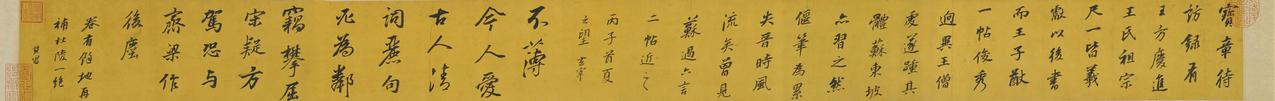 寶章待
訪錄有
王方慶進
王氏祖宗
尺一皆羲
獻以後書
而王子猷
一帖俊秀
迥異王僧
虔遂踵其
體蘇東坡
亦習之然
偃筆為累
失晉時風
流矣曾見
蘇過六言
二帖近之
丙子首夏
之望 玄宰
不薄
今人愛
古人清
詞麗句
必為鄰
竊攀屈
宋疑方
駕恐與
齊梁作
後塵
卷有餘地再
補杜陵一絕
其昌